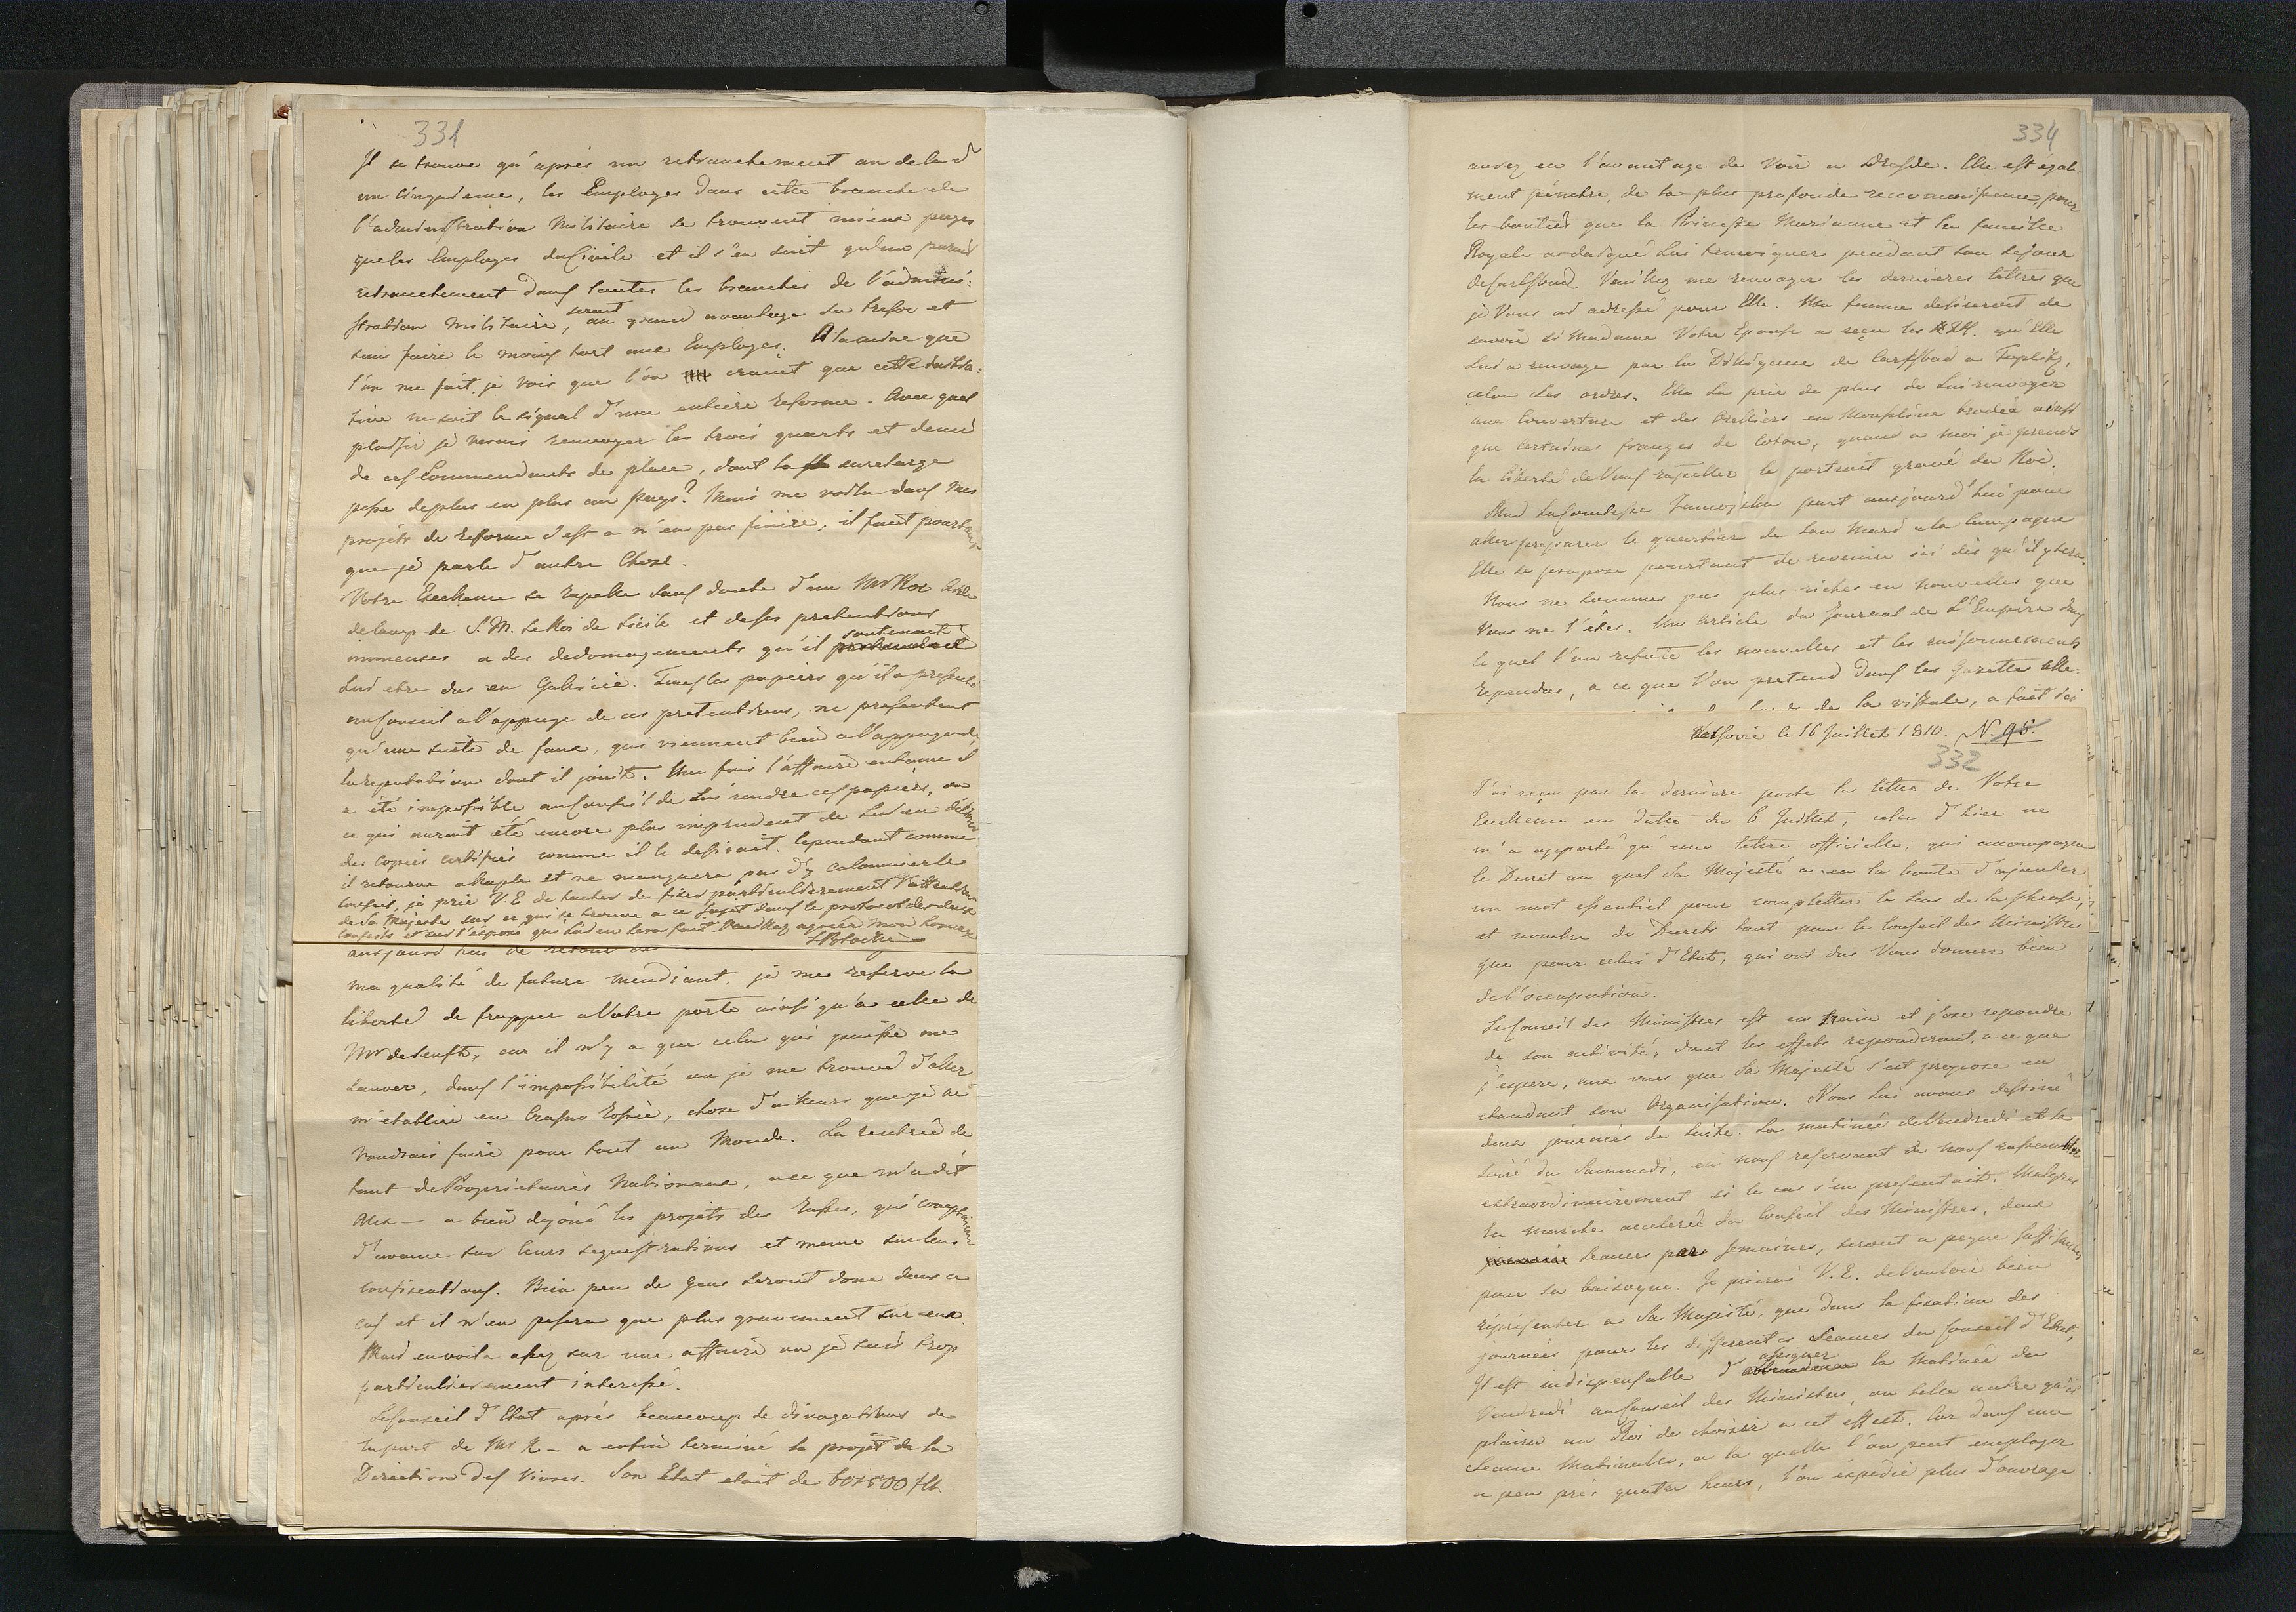 331
Il se trouve qu'après un retranchement au dela d'
un cinquieme, les Employes dans cette branche de
l'administration Militaire se trouvent mieux payes
que les Employes du Civile et il s'en suit qu'un pareil
retranchement dans toutes les branches de l'adminis:
stration Militaire, seroit au grand avantage du tresor et
sans faire le moins tort aux Employes. A la mine que
l'on me fait, je vois que l'on craint que cette
tive ne soit le signal d'une entiere reforme. Avec quel
plaisir je verrois renvoyer les trois quarts et demie
de ces Commendants de place, dont la surcharge
pese de plus en plus au pays? Mais me voila dans mes
projets de reforme c'est a n'en pas finire, il faut pourtant
que je parle d'autre Chose.
Votre Excellence se rapelle sans doute d'un Mr
de camp de S. M. le Roi de Sicile et de ses pretentions
immenses a des dedomagements qu'il soutenoit
lui etre dus en Galicie. Tous les papiers qu'il a presenté
au Conseil a l'appuye de ces pretentions, ne presentent
qu'une suite de faux, qui viennent bien a l'appuye de
la reputation dont il jouit. Une fois l'affaire entamée il
a été impossible au Conseil de lui rendre ces papiers, ou
ce qui auroit été encore plus imprudent de lui en délivrer
des copies certifiées comme il le desiroit. Cependant comme
il retourne a Naple et ne manquera pas d'y calomnier le
Conseil, je prie V. E. de tacher de fixer particulierement l'attention
de Sa Majesté sur ce qui se trouve a ce sujet dans le protocol des deux
Conseils et sur l'exposé qui lui en sera fait. Veuillez agréer mon homage
SPotocki
aujourd'hui de retour
ma qualité de future mendiant, je me reserve la
liberté de frapper a Votre porte ainsi qu'a celle de
Mr de Senft, car il n'y a que cela qui puisse me
sauver, dans l'impossibilité ou je me trouve d'aller
m'etablire en Russie, chose d'ailleurs que je ne
voudrois faire pour tout au Monde. La rentrée de
tant de Proprietaires Nationaux, a ce que m'a dit
Alex — a bien dejoué les projets des Russes, qui comptoient
d'avance sur leurs sequestrations et meme sur leurs
confiscations. Bien peu de gens seront donc dans ce
cas et il n'en pesera que plus gravement sur eux.
Mais en voila assez sur une affaire ou je suis trop
particulierement interessé.
Le Conseil d'Etat après beaucoup de divagations de
la part de Mr R — a enfin terminé le projet de la
Direction des Vivres. Son Etat etoit de 601500 fl.
334
auvez eu l'avantage de voir a Dresde. Elle est egale:
ment penetre de la plus profonde reconnoissance, pour
les bontés que la Princesse Marianne et la famille
Royale a daigné lui temoigner pendant son sejour
de Carlsbad. Veuillez me renvoyer les dernieres lettres que
je Vous ai adressé pour Elle. Ma femme desireroit de
savoir si Madame Votre Epouse a reçu les qu'Elle
lui a renvoye par la Diligence de Carlsbad a Teplitz,
selon Ses ordres. Elle La prie de plus de lui renvoyer
une Couverture et des Oreillers en Mousseline brodée ainsi
que certaines franges de Coton, quand a moi je prends
la liberté de Vous rapeller le portrait gravé du Roi.
Mad la Comtesse Zamoyska part aujourd'hui pour
aller preparer le quartier de Son Mari a la Campagne
Elle se propose pourtant de revenire ici dès qu'il y sera.
Nous ne sommes pas plus riches en nouvelles que
Vous ne l'êtes. Un article du Journal de L'Empire dans
le quel l'on refute les nouvelles et les raisonnements
rependus, a ce que l'on pretend dans les Gazettes Alle:
de la vistule, a fait ici
Varsovie le 16 Juillet 1810. N. 95.
332
J'ai reçu par la derniere poste la lettre de Votre
Excellence en date du 6. Juillet, celle d'hier ne
m'a apporté qu'une lettre officielle, qui accompagne
le Decret au quel Sa Majesté a eu la bonté d'ajouter
un mot essentiel pour completter le sens de la phrase,
et nombre de Decrets tant pour le Conseil des Ministres
que pour celui d'Etat, qui ont du Vous donner bien
de l'occupation.
Le Conseil des Ministres est en train et j'ose repondre
de son activité, dont les effets reponderont, a ce que
j'espere, aux vues que Sa Majesté s'est propose en
etendant son Organisation. Nous lui avons destiné
deux journées de suite. La matinée de Vendredi et la
soiré du Sammedi, en nous reservant de nous rassembler
extraordinairement si le cas s'en presentoit. Malgrez
la marche acceleré du Conseil des Ministres, deux
seances par semaines, seront a peyne suffisantes
pour sa besogne. Je prierai V. E. de Vouloir bien
représenter a Sa Majesté, que dans la fixation des
journées pour les differentes Seances du Conseil d'Etat,
Il est indispensable d'assigner la Matinée du
Vendredi au Conseil des Ministres, ou telle autre qu'il
plaira au Roi de choisir a cet effect. Car dans une
Seance Matinale, a la quelle l'on peut employer
a peu près quatre heurs, l'on éxpedie plus d'ouvrage